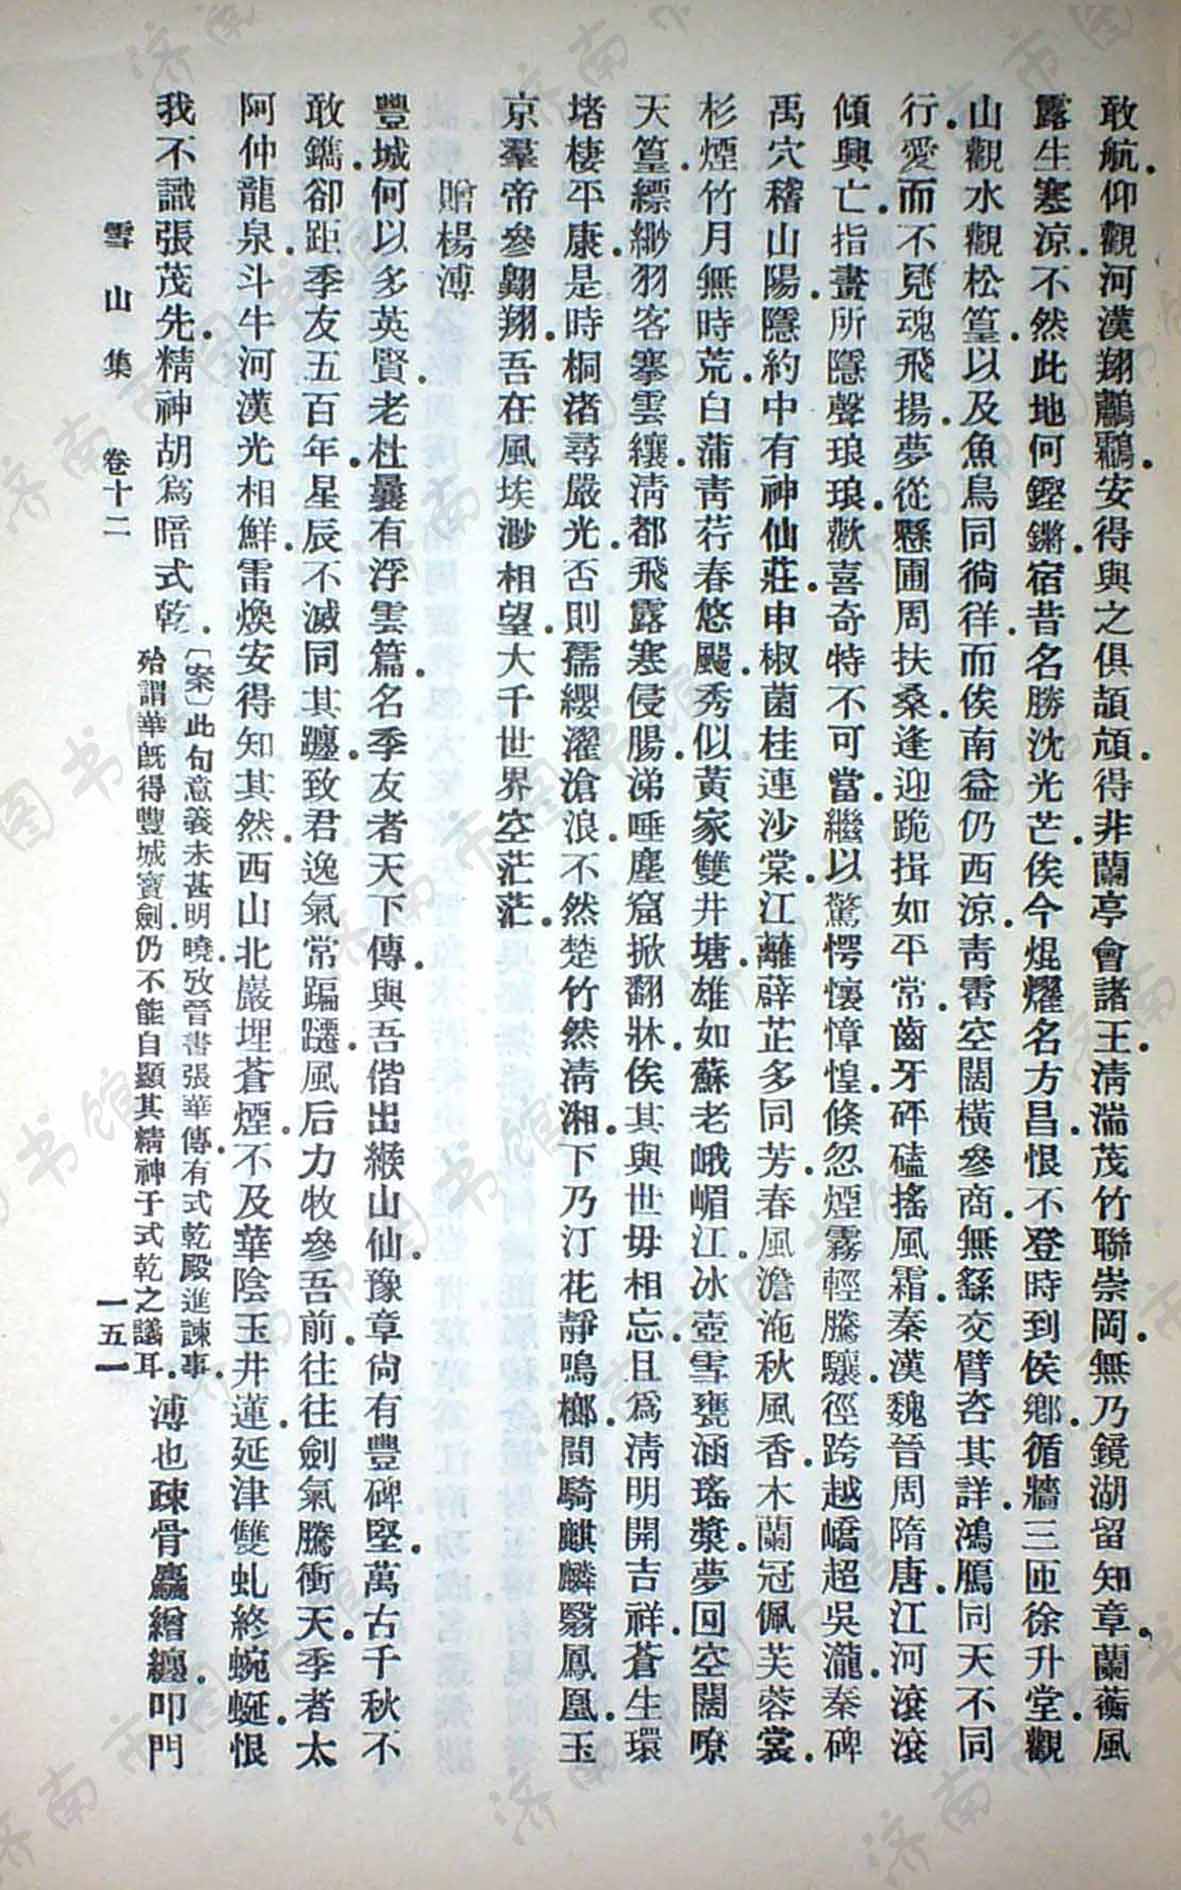 敢航．仰觀河漢翔鸝鸘．安得與之俱頡頏．得非蘭亭會諸王．淸湍茂竹聯崇岡．無乃鏡湖留知章．蘭蘅風
露生寒涼．不然此地何鏗鏘．宿昔名勝沈光芒．俟今焜燿名方昌．恨不登時到侯鄕．循牆三匝徐升堂．觀
山觀水觀松篁．以及魚鳥同徜徉．而俟南益仍西涼．靑霄空闊橫參商．無繇交臂咨其詳．鴻鴈同天不同
行．愛而不見魂飛揚．夢從懸圃周扶桑．逢迎跪揖如平常．齒牙砰磕搖風霜．秦漢魏晉周隋唐．江河滾滾
傾興亡．指畫所隱聲琅琅．歡喜奇特不可當．繼以驚愕懷慞惶．倏忽煙霧輕騰驤．徑跨越嶠超吳瀧．秦碑
禹穴稽山陽．隱約中有神仙莊．申椒菌桂連沙棠．江蘺薜芷多同芳．春風澹沲秋風香．木蘭冠佩芙蓉裳．
杉煙竹月無時荒．白蒲靑荇春悠颺．秀似黃家雙井塘．雄如蘇老峨嵋江．冰壺雪甕涵瑤漿．夢回空闊嘹
天篁．縹緲羽客搴雲纕．淸都飛露寒侵腸．涕唾塵窟掀翻牀．俟其與世毋相忘．且爲淸明開吉祥．蒼生環
堵棲平康．是時桐渚尋嚴光．否則孺纓濯滄浪．不然楚竹然淸湘．下乃汀花靜鳴榔．間騎麒麟翳鳳凰．玉
京羣帝參翺翔．吾在風埃渺相望．大千世界空茫茫．
贈楊溥
豐城何以多英賢．老杜曩有浮雲篇．名季友者天下傳．與吾偕出緱山仙．豫章尙有豐碑堅．萬古千秋不
敢鐫．卻距季友五百年．星辰不滅同其躔．致君逸氣常蹁躚．風后力牧參吾前．往往劍氣騰衝天．季者太
阿仲龍泉．斗牛河漢光相鮮．雷煥安得知其然．西山北巖埋蒼煙．不及華陰玉井蓮．延津雙虬終蜿蜒．恨
我不識張茂先．精神胡爲暗式乾．〔案〕此句意義未甚明曉．攷晉書張華傳．有式乾殿進諫事．
殆謂華旣得豐城寶劍．仍不能自顯其精神于式乾之議耳．溥也疎骨麤繒纏．叩門
雪山集　卷十二　一五一